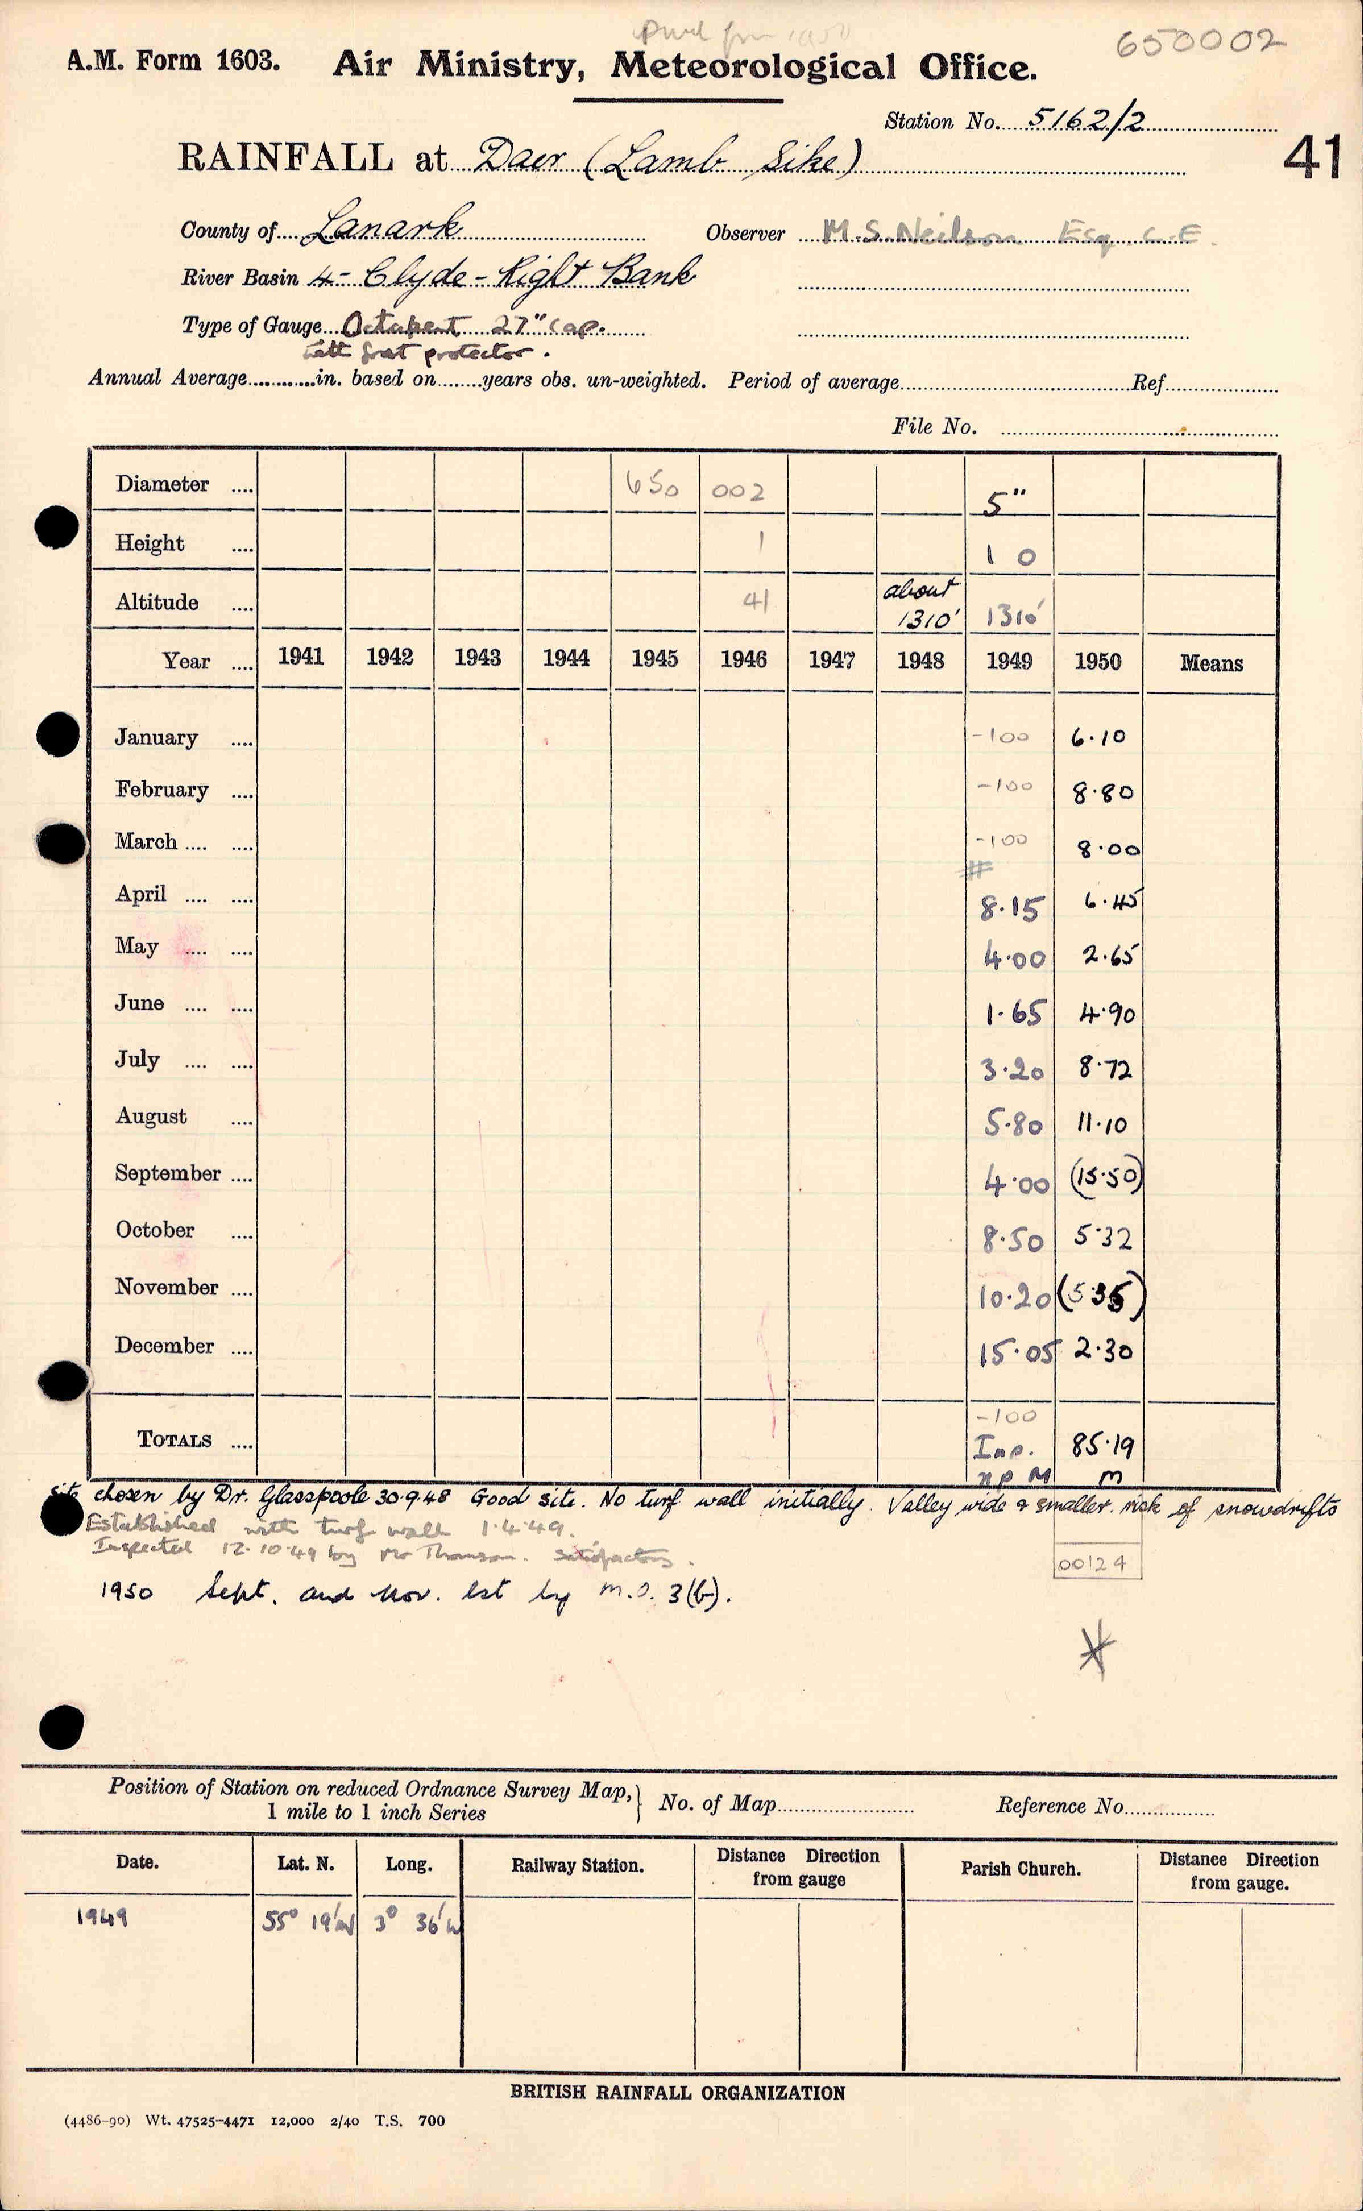 650002
A.M. Form 1603. Air Ministry, Meteorological Office.
Station No. 5162/2
RAINFALL at Daer (Lamb Sike)
41
County of Lanark Observer M.S. Neilson Esq. C.E.
River Basin 4 - Clyde - Right Bank
Type of Gauge Octapent 27" cap.
with frost protector.
Annual Average in. based on years obs. un-weighted. Period of average Ref
File No.
Diameter .... 650 002 5"
Height .... 1 1 0
Altitude .... 41 about 1310' 1310'
Year .... 1941 1942 1943 1944 1945 1946 1947 1948 1949 1950 Means
January .... -100 6.10
February .... -100 8.80
March .... .... -100 8.00
#
April .... .... 8.15 6.45
May .... .... 4.00 2.65
June .... .... 1.65 4.90
July .... .... 3.20 8.72
August .... 5.80 11.10
September .... 4.00 (15.50)
October .... 8.50 5.32
November .... 10.20 (5.35)
December .... 15.05 2.30
-100
TOTALS .... Inp. 85.19
np M m
Site chosen by Dr. Glasspoole 30.9.48 Good site. No turf wall initially. Valley wide & smaller risk of snowdrifts
Established with turf wall 1.4.49.
Inspected 12.10.49 by Mr Thomson. Satisfactory.
00124
1950 Sept. and Nov. est by M.O. 3(b).
Position of Station on reduced Ordnance Survey Map,
1 mile to 1 inch Series
No. of Map
Reference No.
Date. Lat. N. Long. Railway Station. Distance Direction from gauge Parish Church. Distance Direction from gauge.
1949 55° 19'N 3° 36'W
BRITISH RAINFALL ORGANIZATION
(4486-90) Wt. 47525-4471 12,000 2/40 T.S. 700